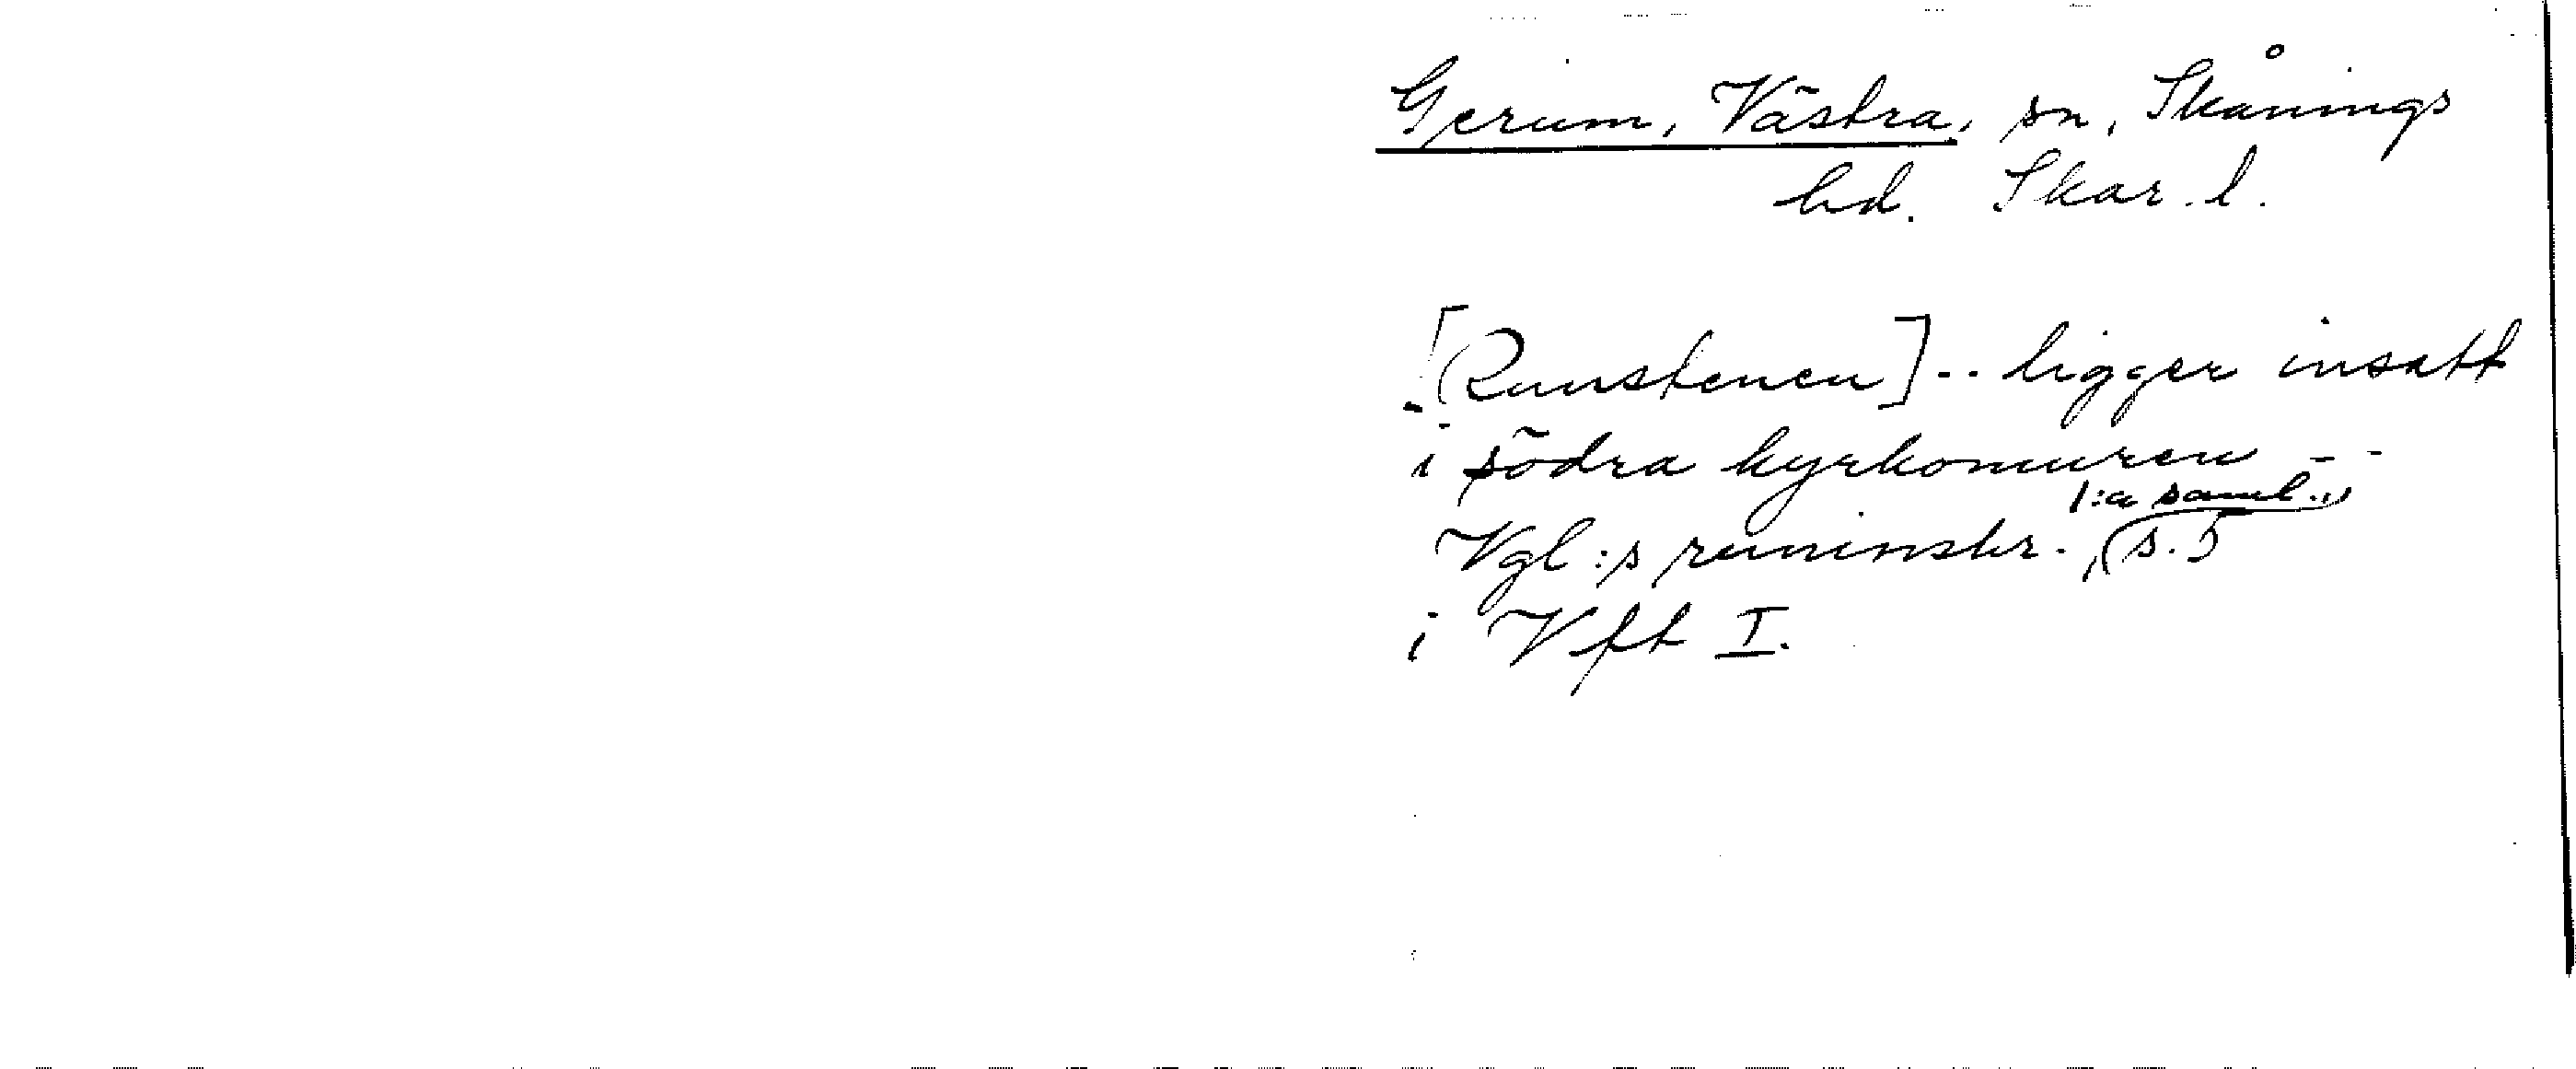 Gerum, Västra, sn, Skånings
hd. Skar. l.
[Runstenen] -- ligger insatt
i södra kyrkomuren --
Vgl:s runinskr., 1:a saml., s. 5
i Vft I.